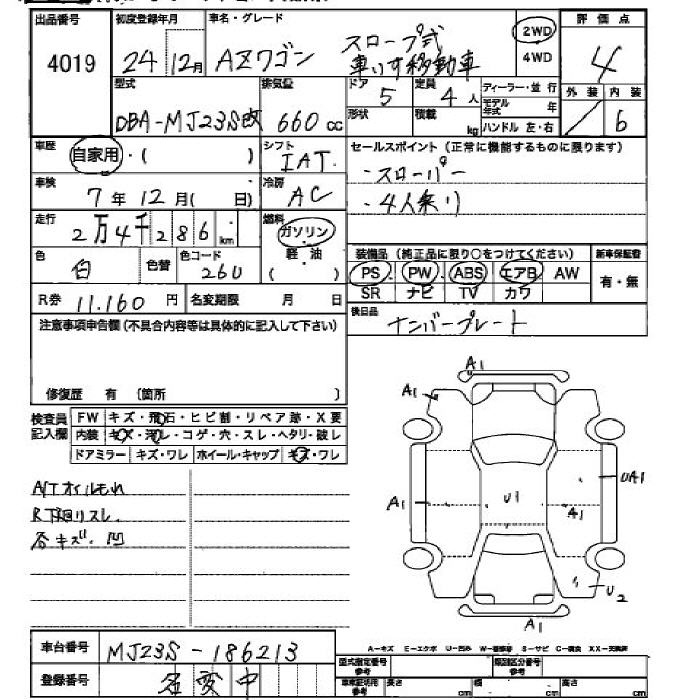 出品番号 初度登録年月 車名・グレード 評価点
4019 24年12月 AZワゴン スロープ式 車いす移動車 2WD 4WD 4
型式 排気量 ドア 定員 ディーラー・並行 外装 内装
DBA-MJ23S改 660cc 5 4人 モデル年式 年 / 6
形状 積載 kg ハンドル 左・右
車歴 自家用・( ) シフト IAT セールスポイント(正常に機能するものに限ります)
・スローパー
車検 7年12月( 日) 冷房 AC
・4人乗り
走行 2万4千286km 燃料 ガソリン・軽油 ( )
色 白 色替 色コード 26U
装備品(純正品に限り○をつけてください) 新車保証書
PS PW ABS エアB AW 有・無
SR ナビ TV カワ
R券 11.160円 名変期限 月 日
後日品 ナンバープレート
注意事項申告欄(不具合内容等は具体的に記入して下さい)
修復歴 有 〔箇所 〕
検査員記入欄 FW キズ・飛石・ヒビ割・リペア跡・X要
内装 キズ・汚レ・コゲ・穴・スレ・ヘタリ・破レ
ドアミラー キズ・ワレ ホイール・キャップ キズ・ワレ
A/Tオイルもれ
R下廻リスレ.
各キズ・凹
A1
A1
UA1
A1 U1 A1
U2
A1
車台番号 MJ23S-186213
登録番号 名変中
A-キズ E-エクボ U-凹み S-サビ C-腐食
型式指定番号参考 類別区分番号参考
長さ cm 幅 cm 高さ cm